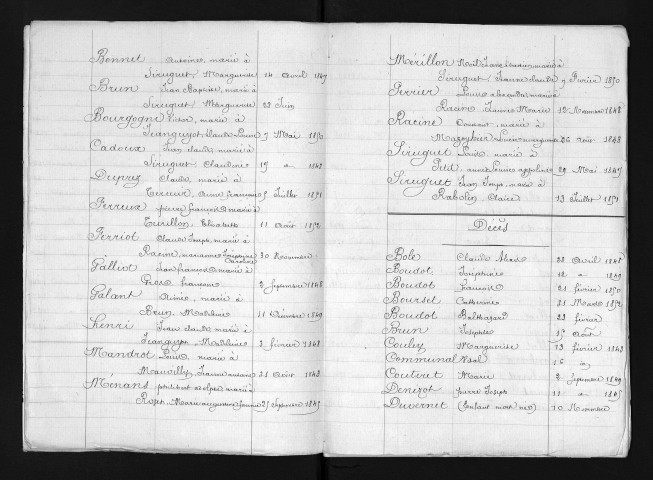 Bonnet Antoine, marié à
Siruguet, Marguerite 14 Avril 1847
Brun Jean Baptiste, marié à
Siruguet, Marguerite 23 Juin
Bourgogne Victor, marié à
Jeanguyot, Claude Louise 7 Mai 1850
Cadoux Jean claude, marié à
Siruguet Claudine 19 " 1842
Duprey Claude, marié à
françoise 5 Juillet 1851
Perreux pierre françois marié à
Turillon, Elisabeth 11 Août 1852
Perriot Claude Joseph, marié à
Racine, marianne Joséphine Caroline 20 Novembre
Galliot Jean françois marié à
Gros françoise 2 Septembre 1848
Galant Reine, marié à
Brun, Madeleine 11 Décembre 1849
henri Jean claude marié à
Jeanguyot, Madeleine 2 février 1848
Mandrot Louis, marié à
Jeanne antoine 21 Août 1848
Ménans marié à
Marie augustine 25 Septembre 1845
Mérillon Noël marié à
Siruguet, Jeanne claude 7 Février 1850
Perrier Louis alexandre, marié à
Racine Jeanne Marie 12 Novembre 1848
Racine Constant, marié à
Louise marguerite 26 Août 1848
Siruguet Louis marié à
Petit, anne Louise appoline 29 Mai 1845
Siruguet Jean Joseph, marié à
Rabolin, Claire 13 Juillet 1851
Décès
Bole Claude Alexis 22 Avril 1848
Boudot Joséphine 12 " 1849
Boudot Laurent 21 février 1850
Boursel Catherine 21 Mars 1852
Boudot Balthazard 23 février
Brun Josephte 15 Août
Couley Marguerite 13 février 1843
Communal 16
Couturet Marie 2 Septembre 1849
Denizot pierre Joseph 11 " 1845
Duvernet (enfant mort né) 10 Novembre